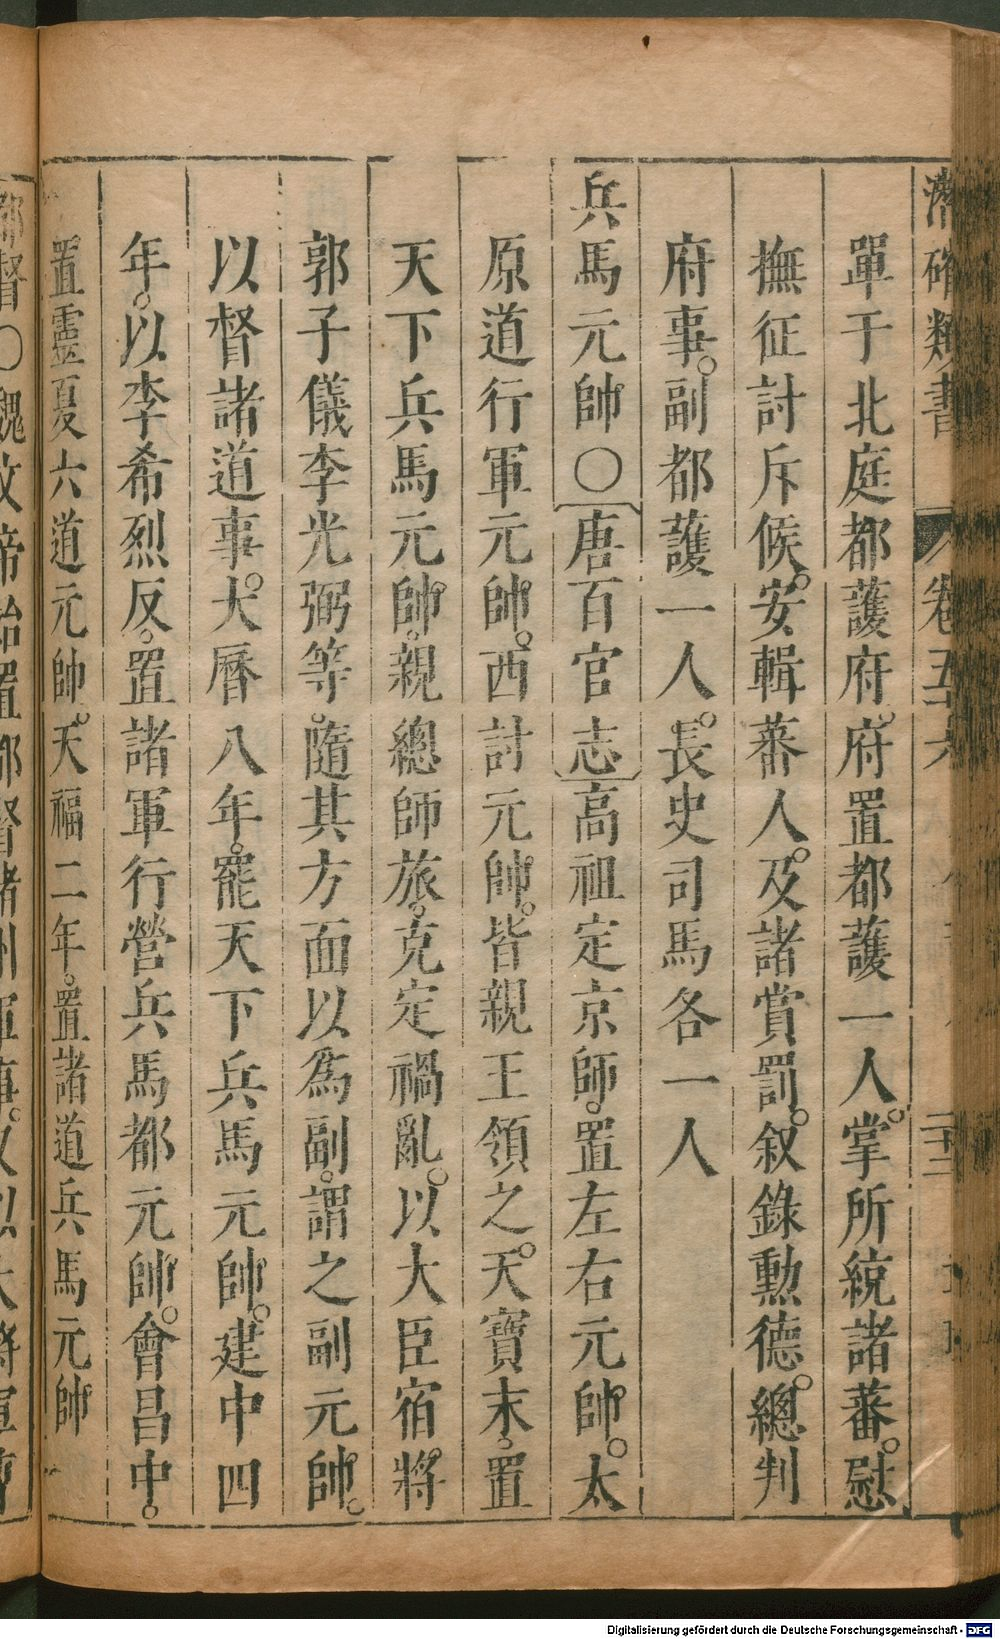 潛確類書 卷五十六
單于北庭都護府。府置都護一人。掌所統諸蕃。慰
撫征討斥候。安輯蕃人。及諸賞罰。敘錄勲德。總判
府事。副都護一人。長史司馬各一人
兵馬元帥〇唐百官志高祖定京師。置左右元帥。太
原道行軍元帥。西討元帥。皆親王領之。天寶末。置
天下兵馬元帥。親總師旅。克定禍亂。以大臣宿將
郭子儀李光弼等。隨其方面以爲副。謂之副元帥。
以督諸道事。大曆八年。罷天下兵馬元帥。建中四
年。以李希烈反。置諸軍行營兵馬都元帥。會昌中。
置靈夏六道元帥。天福二年。置諸道兵馬元帥
都督〇魏文帝始置都督諸州軍事。又以大將軍
Digitalisierung gefördert durch die Deutsche Forschungsgemeinschaft - DFG